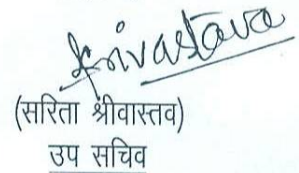 Srivastava
(सरिता श्रीवास्तव)
उप सचिव